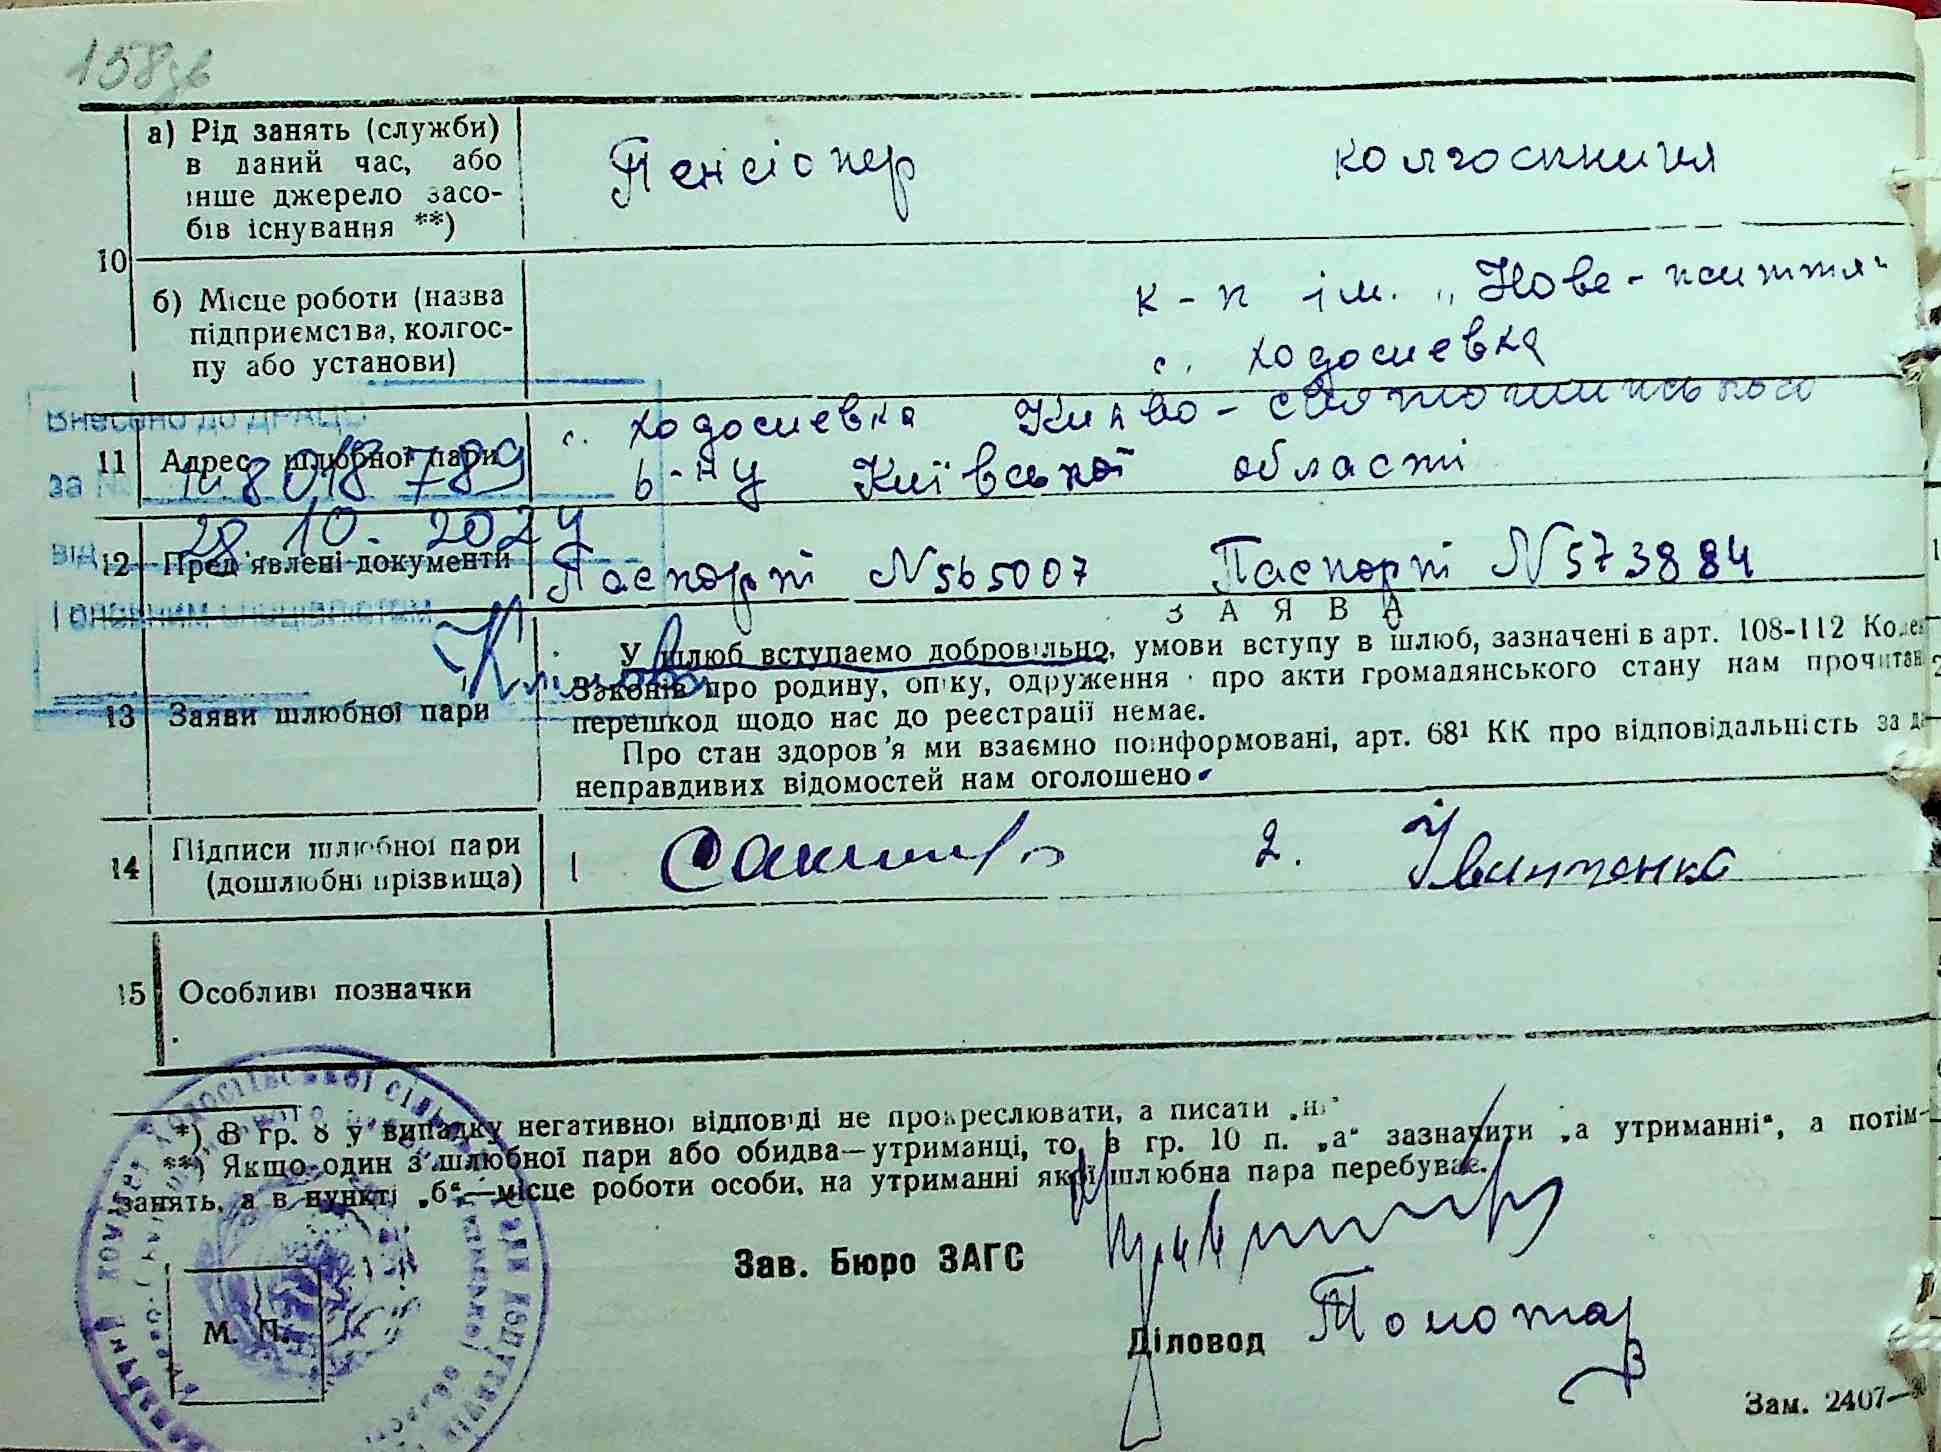 158зв
а) Рід занять (служби)
в даний час, або
інше джерело засо-
бів існування **)
Пенсіонер
колгоспниця
10
б) Місце роботи (назва
підприємства, колгос-
пу або установи)
к-п ім. „Нове-життя"
с. Ходосиевка
Внесено до ДРАЦС
за
018789
від
28.10.2024
Головним спеціалістом
11 Адрес шлюбної пари
с. Ходосиевка Києво-святошинського
р-ну Київської області
12 Пред'явлені документи
Паспорт N565007 Паспорт N573884
ЗАЯВА
13 Заяви шлюбної пари
У шлюб вступаємо добровільно, умови вступу в шлюб, зазначені в арт. 108-112
Законів про родину, опіку, одруження про акти громадянського стану нам прочитан
перешкод щодо нас до реєстрації немає.
Про стан здоров'я ми взаємно поінформовані, арт. 68¹ КК про відповідальність за
неправдивих відомостей нам оголошено.
14 Підписи шлюбної пари
(дошлюбні прізвища)
1
2.
15 Особливі позначки
*) В гр. 8 у випадку негативної відповіді не прокреслювати, а писати „ні"
**) Якщо один з шлюбної пари або обидва—утриманці, то в гр. 10 п. „а" зазначити „а утриманні", а потім
занять, а в пункті „б"—місце роботи особи, на утриманні якої шлюбна пара перебуває.
Зав. Бюро ЗАГС
М. П.
Діловод
Зам. 2407—